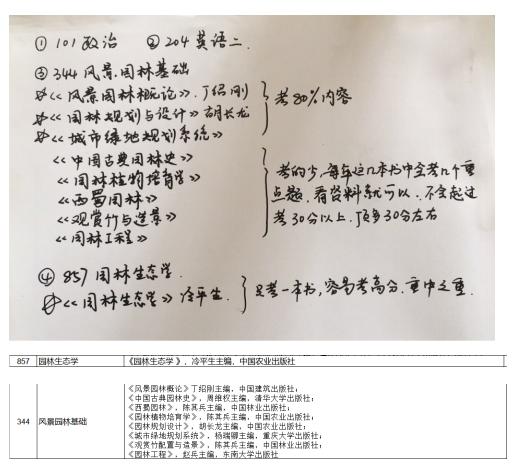 ① 101 政治 ② 204 英语二.
③ 344 风景园林基础
《风景园林概论》.丁绍刚
《园林规划与设计》胡长龙
《城市绿地规划系统》
考80%内容
《中国古典园林史》
《园林植物培育学》
《西蜀园林》
《观赏竹与造景》
《园林工程》
考的少,每年这几本书中会考几个重
点题.看资料就可以.不会超过
考30分以上.顶多30分左右
④ 857 园林生态学.
《园林生态学》冷平生.
只考一本书,容易考高分.重中之重.
857 园林生态学 《园林生态学》,冷平生主编,中国农业出版社
344 风景园林基础
《风景园林概论》丁绍刚主编,中国建筑出版社;
《中国古典园林史》,周维权主编,清华大学出版社;
《西蜀园林》,陈其兵主编,中国林业出版社;
《园林植物培育学》,陈其兵主编,中国农业出版社;
《园林规划设计》,胡长龙主编,中国农业出版社;
《城市绿地规划系统》,杨瑞卿主编,重庆大学出版社;
《观赏竹配置与造景》,陈其兵主编,中国林业出版社;
《园林工程》,赵兵主编,东南大学出版社